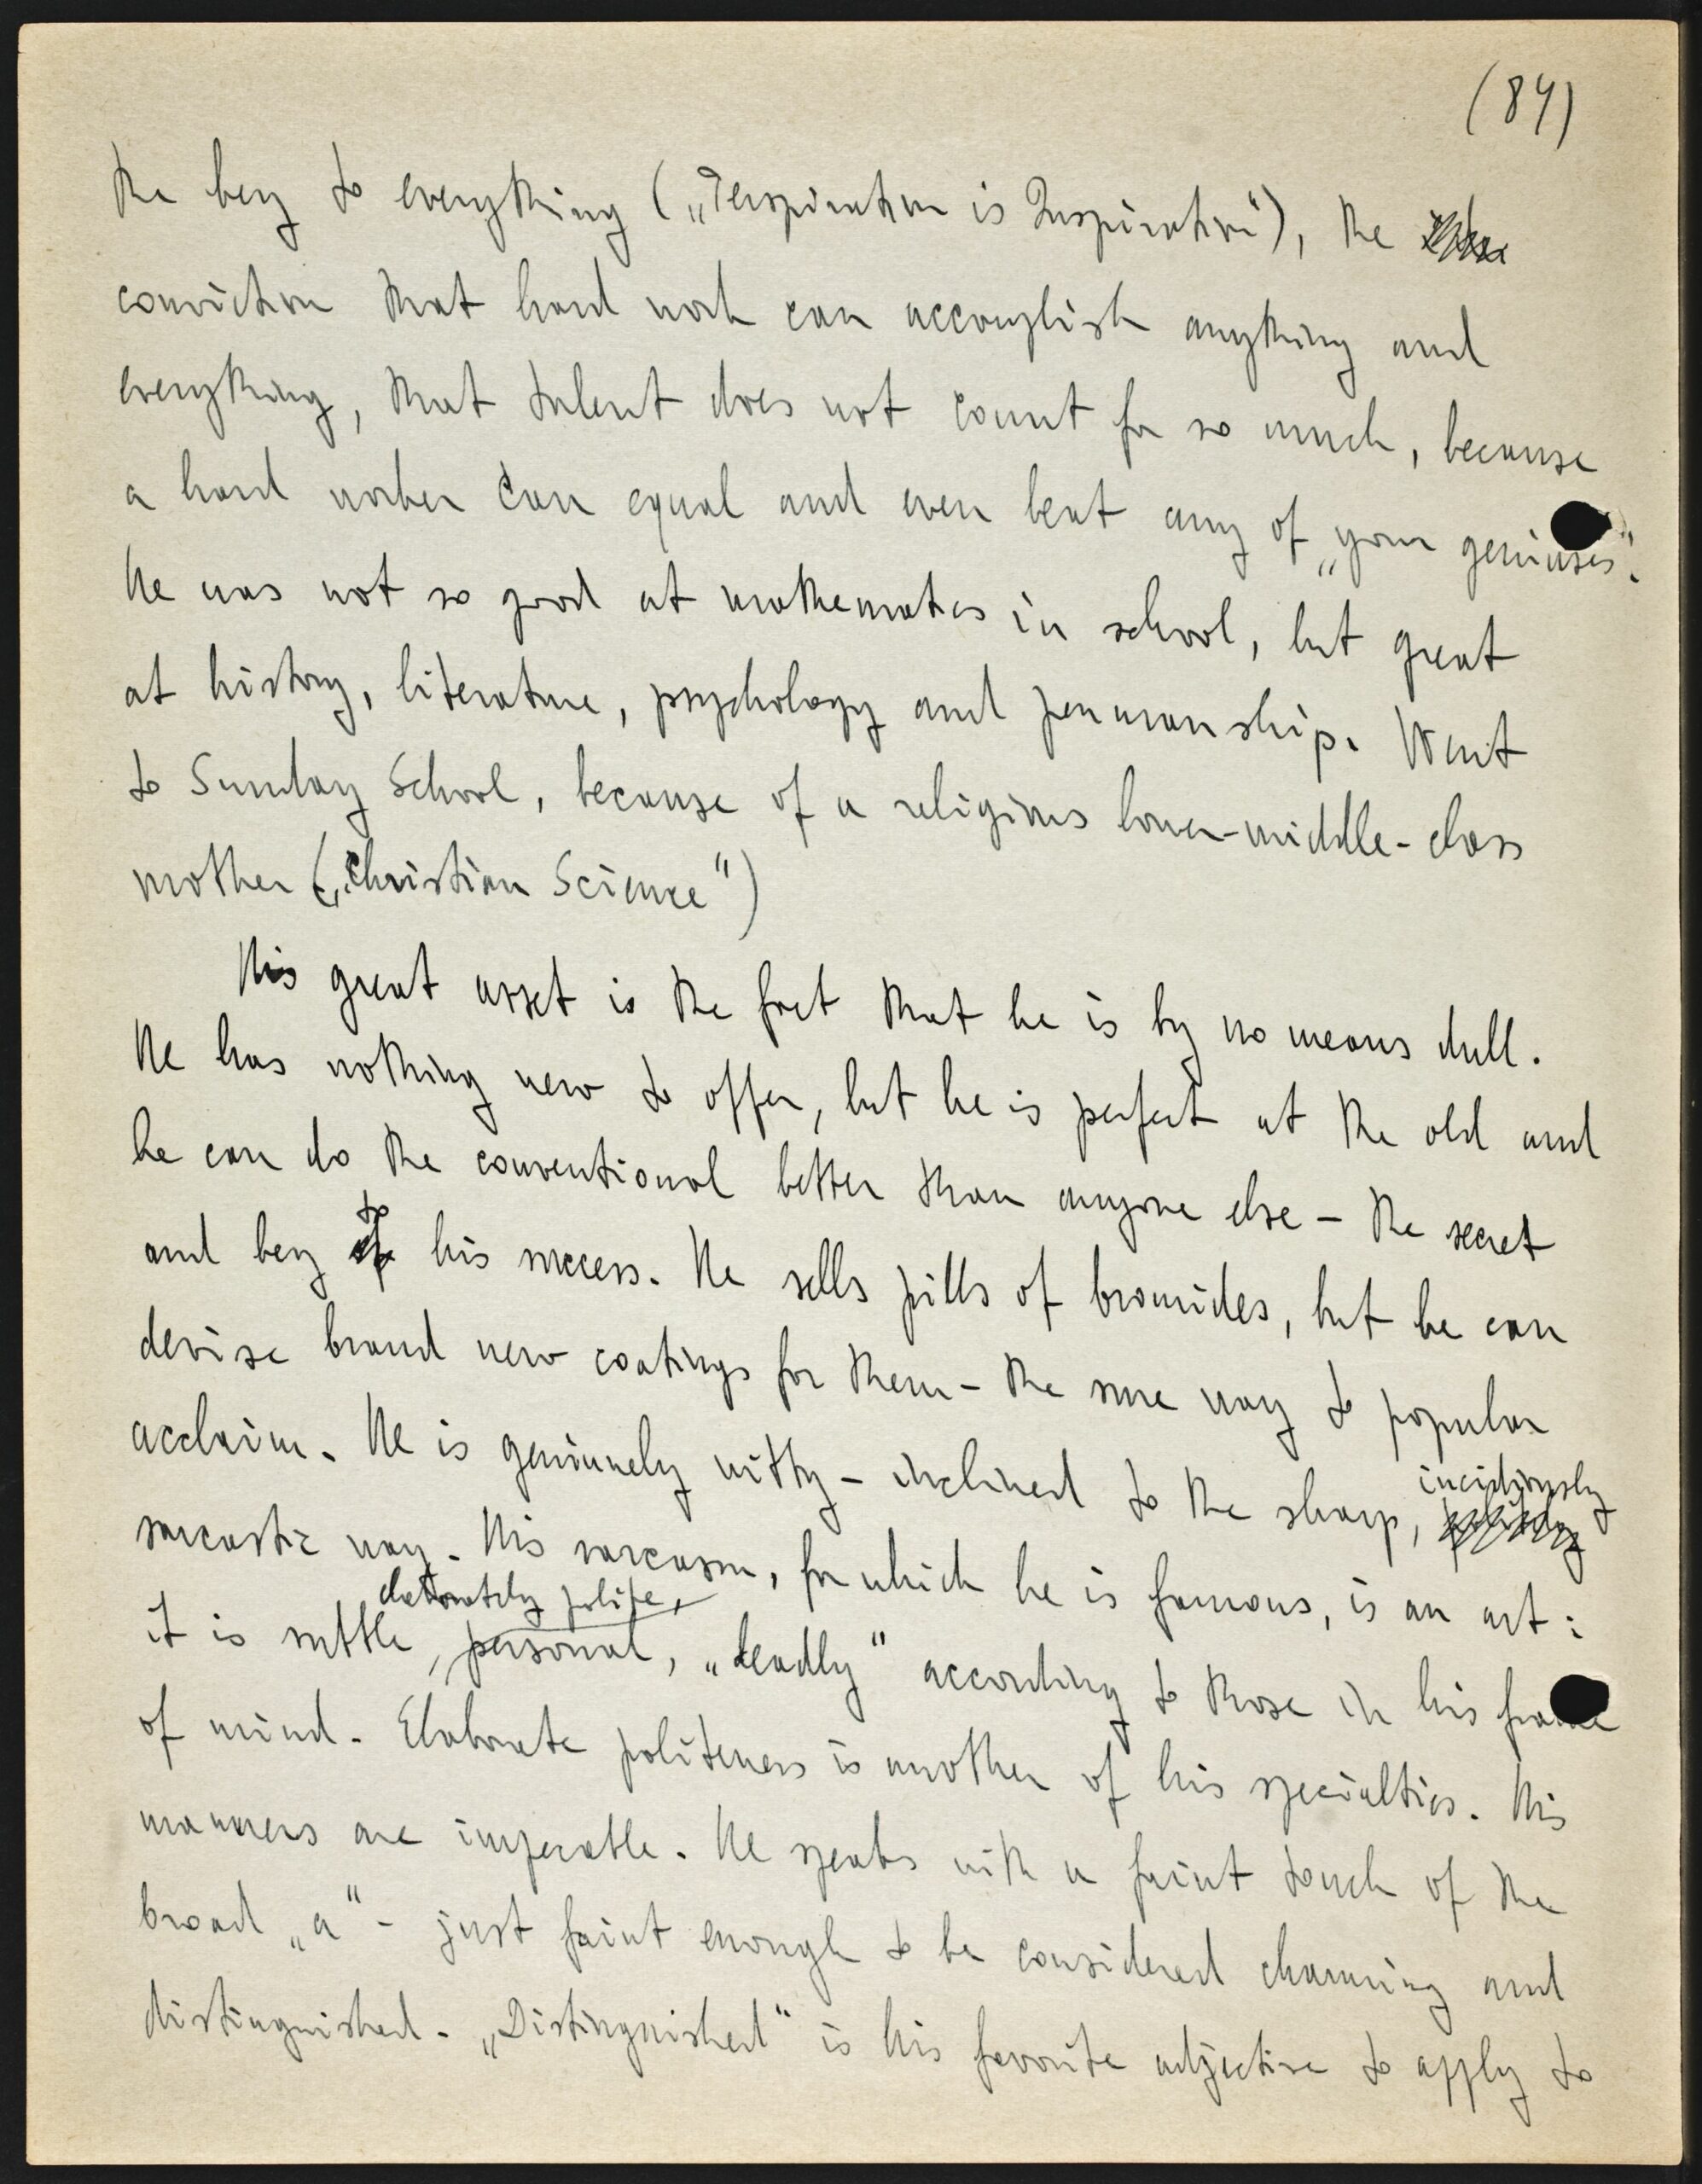 (84)
the key to everything („Perspiration is Inspiration“), the
conviction that hard work can accomplish anything and
everything, that talent does not count for so much, because
a hard worker can equal and even beat any of „your geniuses“.
He was not so good at mathematics in school, but great
at history, literature, psychology and penmanship. Went
to Sunday School, because of a religious lower-middle-class
mother („Christian Science“)
His great asset is the fact that he is by no means dull.
He has nothing new to offer, but he is perfect at the old and
he can do the conventional better than anyone else – the secret
and key to his success. He sells pills of bromides, but he can
devise brand new coatings for them – the sure way to popular
acclaim. He is genuinely witty – inclined to the sharp, incidiously
sarcastic way. His sarcasm, for which he is famous, is an art:
elaborately polite,
it is subtle, personal, „deadly“ according to those in his frame
of mind. Elaborate politeness is another of his specialties. His
manners are impecable. He speaks with a faint touch of the
broad „a“ – just faint enough to be considered charming and
distinguished. „Distinguished“ is his favorite adjective to apply to